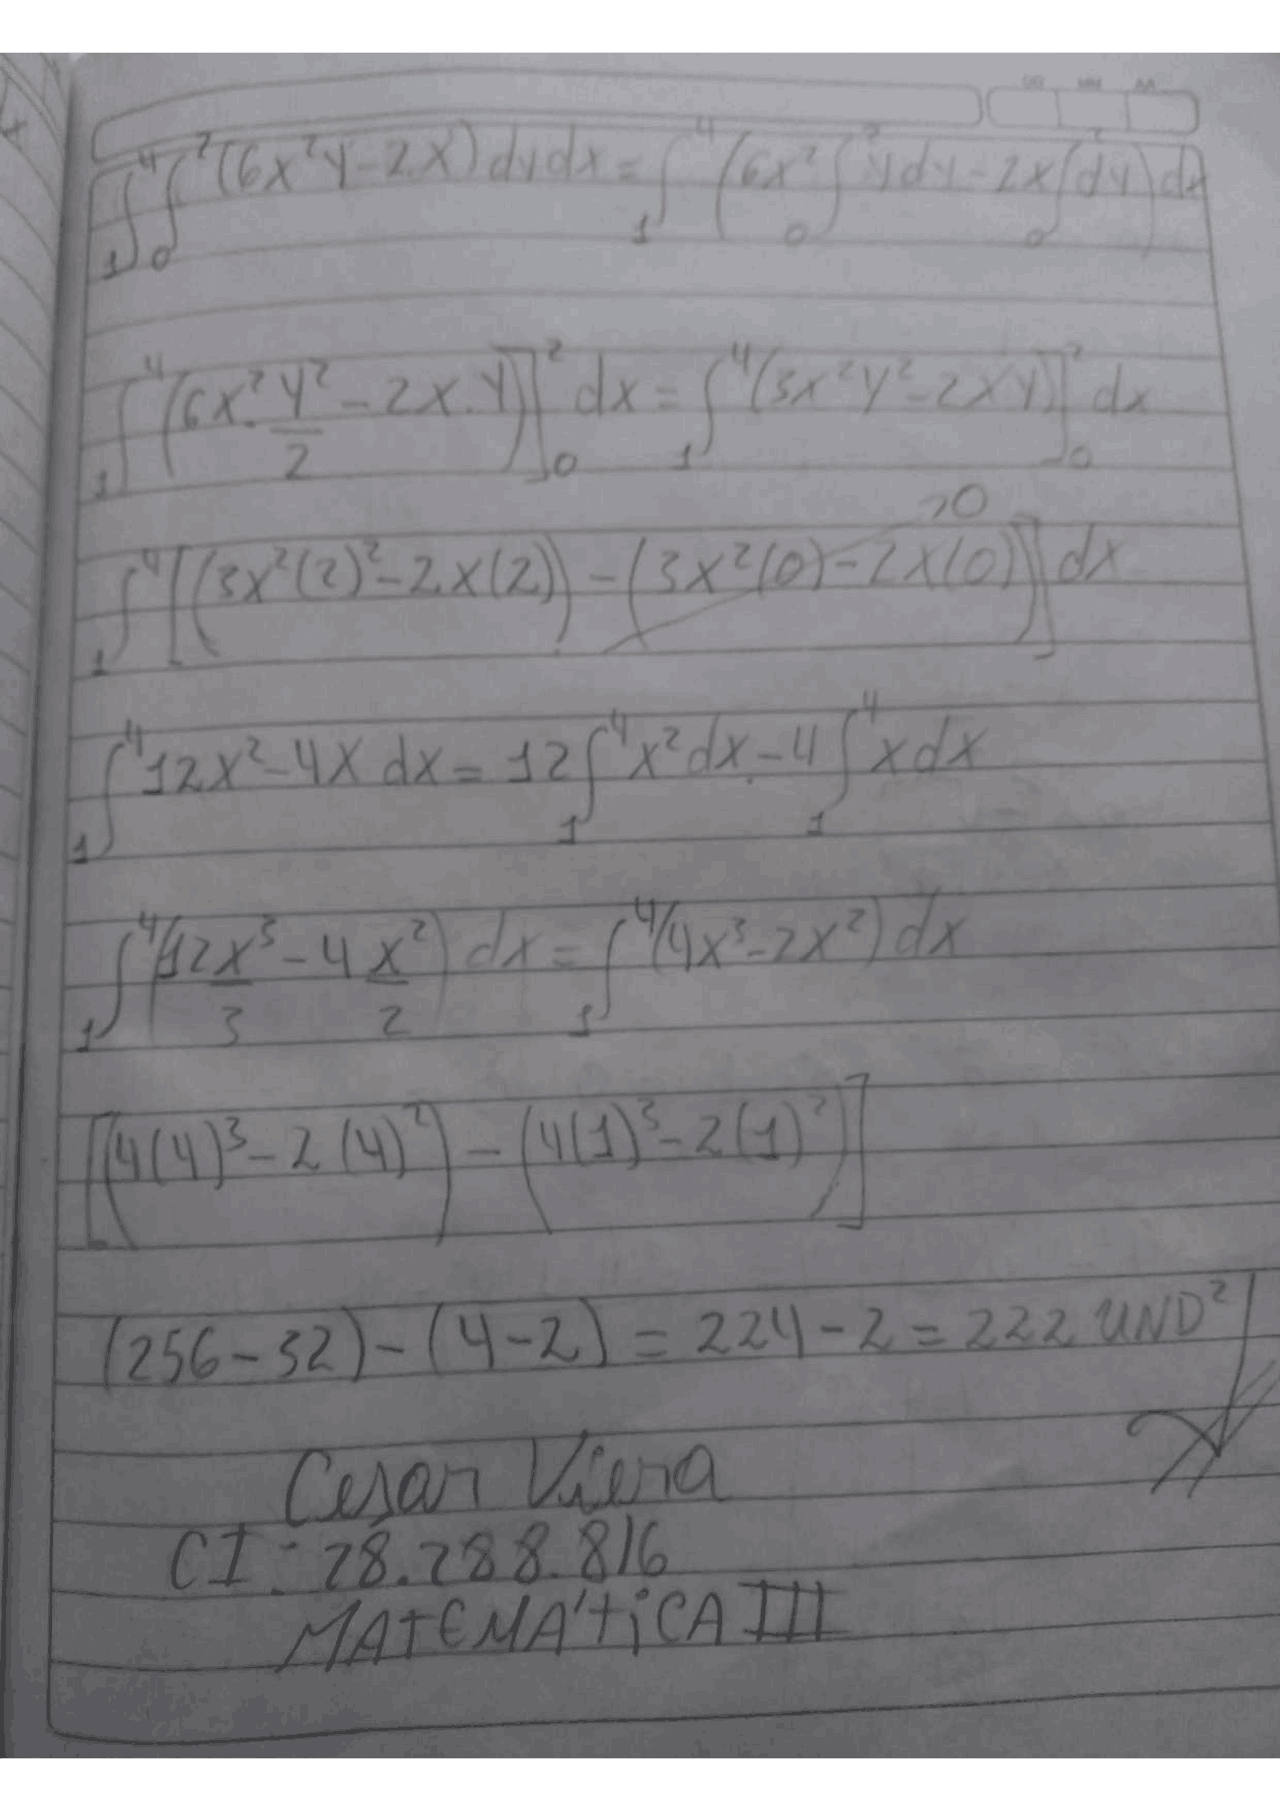 DD MM AA
∫₁⁴∫₀²(6x²y-2x)dydx = ∫₁⁴(6x²∫₀²ydy-2x∫₀²dy)dx
∫₁⁴(6x².y²/2 - 2x.y)]₀² dx = ∫₁⁴(3x²y²-2xy)]₀² dx
∫₁⁴[(3x²(2)²-2x(2)) - (3x²(0)-2x(0))]dx →0
∫₁⁴12x²-4x dx = 12∫₁⁴x²dx-4∫₁⁴xdx
∫₁⁴(12x³/3 - 4x²/2)dx = ∫₁⁴(4x³-2x²)dx
[(4(4)³-2(4)²) - (4(1)³-2(1)²)]
(256-32)-(4-2) = 224-2 = 222 UND²
Cesar Viera
CI: 28.288.816
MATEMÁtiCA III